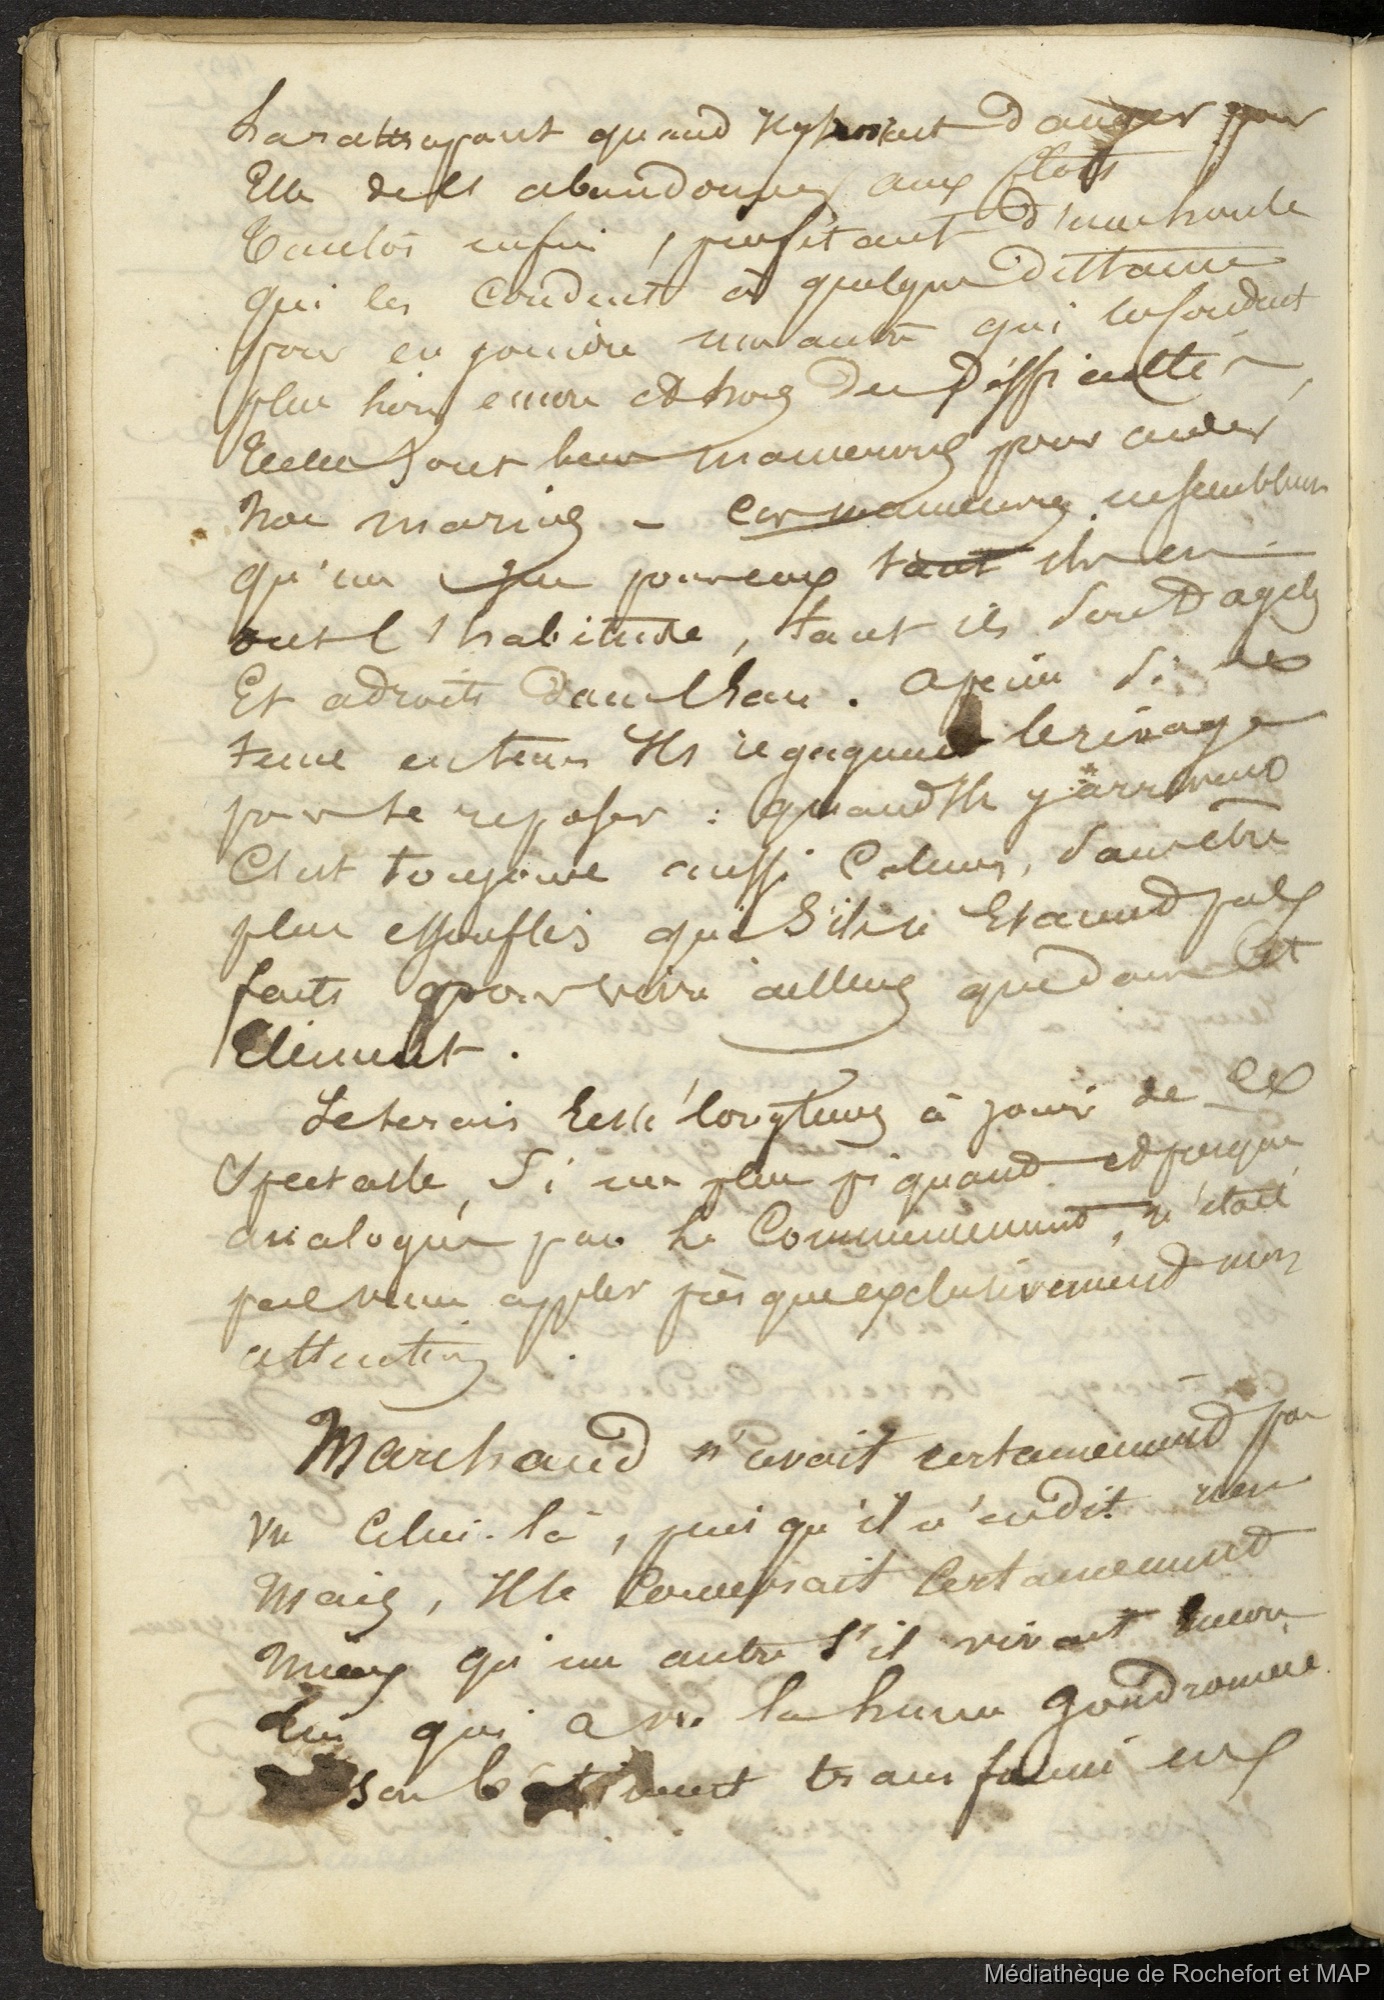 La rattrapant quand il y aurait danger pour
Elle de les abandonner aux flots
Tantôt enfin, profitant d'une houle
qui les conduit à quelque distance
pour en joindre une autre qui les conduit
plus loin encore et hors des difficultés,
Telles sont leur manoeuvres pour aider
nos marins – Ces manoeuvres ne semblent
qu'un jeu pour eux tant ils en
ont l'habitude, tant ils sont agiles
Et adroits dans l'eau. Apeine si de
tems en tems Ils regagnent le rivage
pour se reposer : quand Ils y arrivent
C'est toujours aussi Calmes, sans être
plus essouflés que S'ils n'Etaient pas
faits pour vivre ailleurs que dans Cet
Elément.
Je serais resté longtems à jouir de Ce
Spectacle, Si un plus piquant et presque
analogue par le Commencement, n'était
pas venu appler presque exclusivement mon
attention.
Marchand n'avait certainement pas
vu Celui-là, puis qu'il n'en dit rien
Mais, Il le Connaissait Certainement
Mieux qu'un autre s'il vivait encore
Lui qui a vu la hune goudronnée
son bâtiment transformé en
Médiathèque de Rochefort et MAP